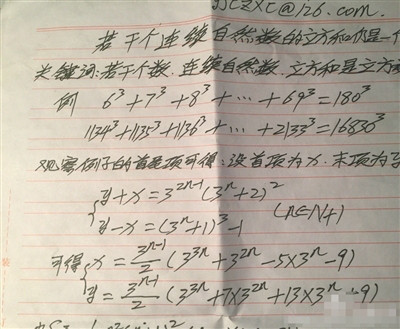 @126.com.
若干个连续自然数的立方和仍是一个
关键词:若干个数.连续自然数.立方和是立方
例 6³+7³+8³+…+69³=180³
1134³+1135³+1136³+…+2133³=16830³
观察例子的首尾项可得:设首项为x.末项为y
{y+x=3^{2n-1}(3^n+2)^2
y-x=(3^n+1)^3-1 (n∈N+)
可得{x=3^{n-1}/2(3^{3n}+3^{2n}-5×3^n-9)
y=3^{n-1}/2(3^{3n}+7×3^{2n}+13×3^n+9)